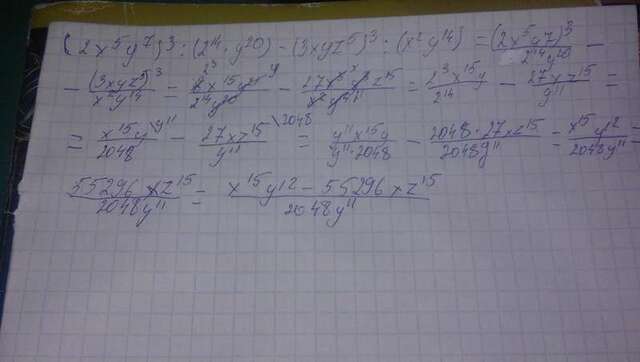 (2x⁵y⁷)³ : (2¹⁴ · y²⁰) − (3xyz⁵)³ : (x² y¹⁴) = (2x⁵y⁷)³ / 2¹⁴y²⁰ −
− (3xyz⁵)³ / x²y¹⁴ = 2³x¹⁵y²¹ / 2¹⁴y²⁰ − 27x³y³z¹⁵ / x²y¹⁴ = 2³x¹⁵y / 2¹⁴ − 27xz¹⁵ / y¹¹ =
= x¹⁵y / 2048 \y¹¹ − 27xz¹⁵ / y¹¹ \2048 = y¹¹x¹⁵y / y¹¹·2048 − 2048·27xz¹⁵ / 2048y¹¹ = x¹⁵y¹² / 2048y¹¹ −
55296xz¹⁵ / 2048y¹¹ = x¹⁵y¹² − 55296xz¹⁵ / 2048y¹¹